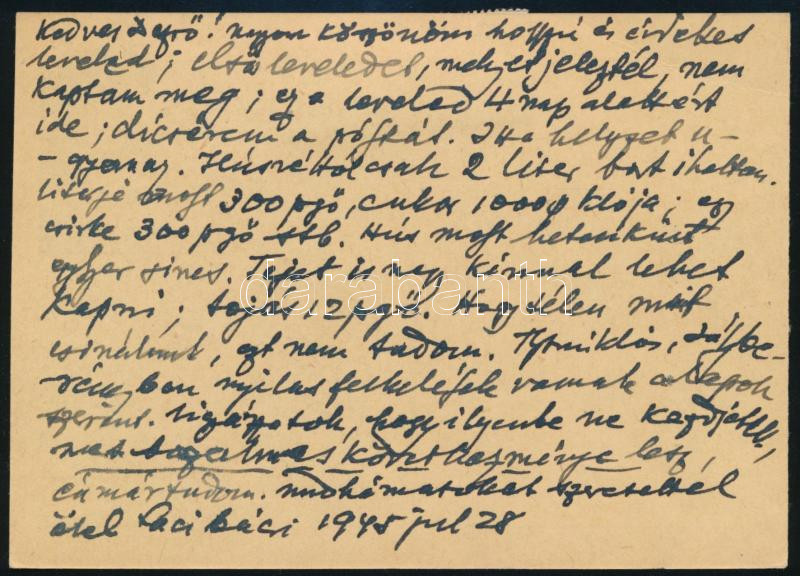 Kedves Dezső! nagyon köszönöm hosszú és érdekes
leveled; első leveledet, melyet jeleztél, nem
kaptam meg; ez a leveled 4 nap alatt ért
ide; dicsérem a póstát. Itt a helyzet u-
-gyanaz. Húsvéttól csak 2 liter bort ihattam.
literje most 300 pgő, cukor 1000 Klója; egy
csirke 300 pgő stb. Hús most hetenkint
egyszer sincs. Tejet is nagy kínnal lehet
kapni; tojás 12 pgő. Hogy télen mit
csinálunk, ezt nem tudom. Jász be-
rényben nyilas felkelések vannak a lapok
szerint. Vigyázzatok, hogy ilyenbe ne kezdjetek,
mert borzalmas következménye lesz,
én már tudom. mindnyájatokat szeretettel
ölel Laci bácsi 1945 jul 28
darabanth